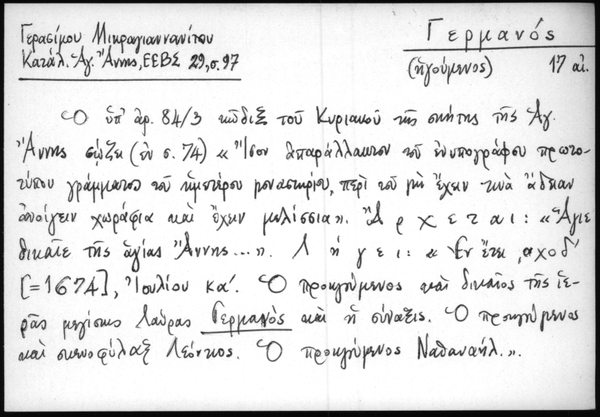 Γερασίμου Μικραγιαννανίτου
Κατάλ. Ἁγ. Ἄννης, ΕΕΒΣ 29, σ. 97
Γερμανός
(ἡγούμενος) 17 αἰ.
Ὁ ὑπ' ἀρ. 84/3 κῶδιξ τοῦ Κυριακοῦ τῆς σκήτης τῆς Ἁγ.
Ἄννης σῴζει (ἐν σ. 74) «Ἴσον ἀπαράλλακτον τοῦ ἐνυπογράφου πρωτο-
τύπου γράμματος τοῦ ἡμετέρου μοναστηρίου, περὶ τοῦ μὴ ἔχειν τινὰ ἄδειαν
ἀνοίγειν χωράφια καὶ ἔχειν μελίσσια». Ἄρχεται: «Ἅγιε
δικαῖε τῆς ἁγίας Ἄννης...». Λήγει: «Ἐν ἔτει ͵αχοδ'
[=1674], Ἰουλίου κα'. Ὁ προηγούμενος καὶ δικαῖος τῆς ἱε-
ρᾶς μεγίστης Λαύρας Γερμανὸς καὶ ἡ σύναξις. Ὁ προηγούμενος
καὶ σκευοφύλαξ Λεόντιος. Ὁ προηγούμενος Ναθαναήλ.».